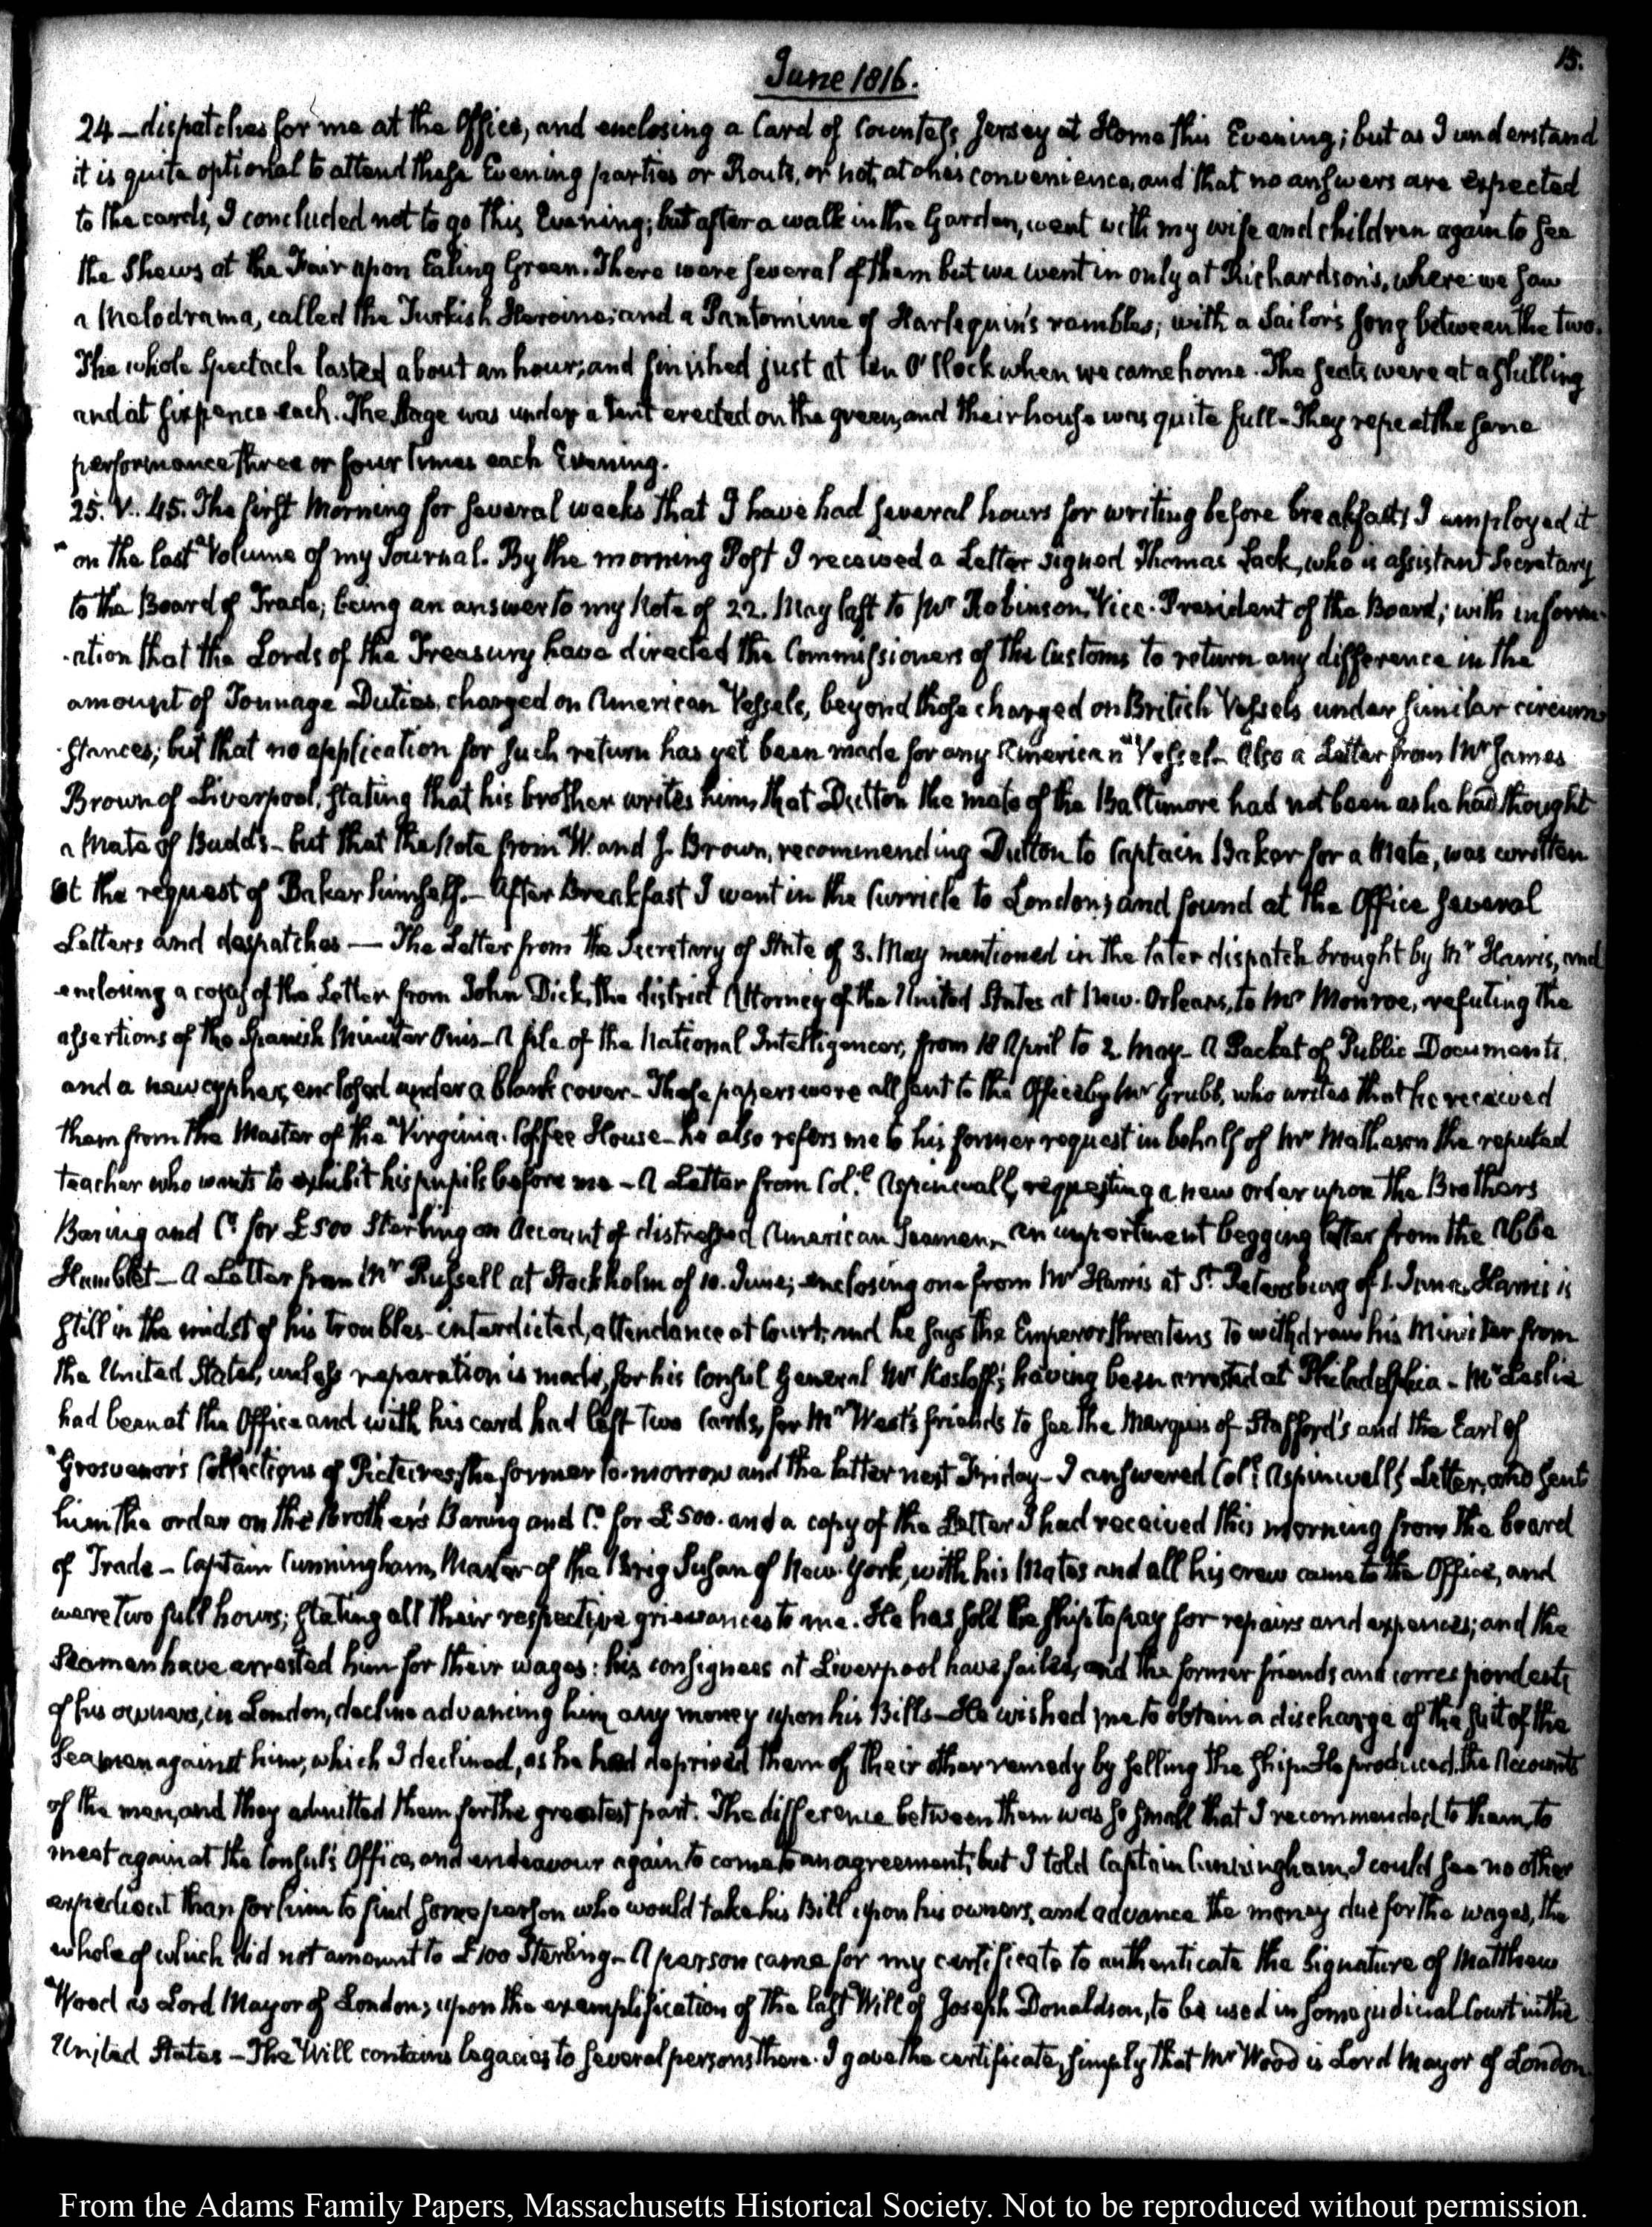 15.
June 1816.
24 – dispatches for me at the Office, and enclosing a Card of Countess Jersey at Home this Evening; but as I understand
it is quite optional to attend these Evening parties or Routs, or not, at ones convenience, and that no answers are expected
to the cards, I concluded not to go this Evening; but after a walk in the Garden, went with my wife and children again to see
the Shews at the Fair upon Ealing Green. There were several of them but we went in only at Richardson's, where we saw
a Melodrama, called the Turkish Heroine; and a Pantomime of Harlequin's rambles; with a Sailor's song between the two.
The whole Spectacle lasted about an hour; and finished just at ten O'Clock when we came home. The seats were at a shilling
and at sixpence each. The stage was under a tent erected on the green, and their house was quite full – They repeat the same
performance three or four times each Evening.
25. V. 45. The first Morning for several weeks that I have had several hours for writing before breakfast; I employed it
on the last Volume of my Journal. By the morning Post I received a Letter signed Thomas Lack, who is assistant Secretary
to the Board of Trade; being an answer to my Note of 22. May last to Mr Robinson, Vice-President of the Board; with inform-
-ation that the Lords of the Treasury have directed the Commissioners of the Customs to return any difference in the
amount of Tonnage Duties, charged on American Vessels, beyond those charged on British Vessels under similar circum-
-stances; but that no application for such return has yet been made for any American Vessel – Also a Letter from Mr James
Brown of Liverpool, stating that his brother writes him, that Dutton the mate of the Baltimore had not been as he had thought
a Mate of Budd's – but that the Note from W. and J. Brown, recommending Dutton to Captain Baker for a Mate, was written
at the request of Baker himself. – After Breakfast I went in the Curricle to London; and found at the Office several
Letters and despatches – The Letter from the Secretary of State of 3. May mentioned in the later dispatch brought by Mr Harris, and
enclosing a copy of the Letter from John Dick, the district Attorney of the United States at New-Orleans, to Mr Monroe, refuting the
assertions of the Spanish Minister Onis – A file of the National Intelligencer, from 18 April to 2. May – A Packet of Public Documents,
and a new cypher, enclosed under a blank cover – These papers were all sent to the Office by Mr Grubb, who writes that he received
them from the Master of the Virginia Coffee House – he also refers me to his former request in behalf of Mr Matheson the reputed
teacher who wants to exhibit his pupils before me – A Letter from Col.l Aspinwall, requesting a new order upon the Brothers
Baring and Co for £500 Sterling on Account of distressed American Seamen – An impertinent begging letter from the Abbé
Hamblet – A Letter from Mr Russell at Stockholm of 10. June; enclosing one from Mr Harris at St Petersburg of 1. June. Harris is
still in the midst of his troubles – interdicted, attendance at Court; and he says the Emperor threatens to withdraw his Minister from
the United States, unless reparation is made, for his Consul General Mr Kosloff's having been arrested at Philadelphia – Mr Leslie
had been at the Office and with his card had left two Cards, for Mr West's friends to see the Marquis of Stafford's and the Earl of
Grosvenor's Collections of Pictures, the former to-morrow and the latter next Friday – I answered Col.l Aspinwall's Letter, and sent
him the order on the Brother's Baring and Co for £500. and a copy of the Letter I had received this morning from the board
of Trade – Captain Cunningham, Master of the Brig Susan of New York, with his Mates and all his crew came to the Office, and
were two full hours; stating all their respective grievances to me. He has sold the ship to pay for repairs and expences; and the
Seamen have arrested him for their wages: his consignees at Liverpool have failed, and the former friends and correspondents
of his owners, in London, decline advancing him any money upon his Bills – He wished me to obtain a discharge of the suit of the
Seamen against him, which I declined, as he had deprived them of their other remedy by selling the ship. He produced the Accounts
of the men, and they admitted them for the greatest part. The difference between them was so small that I recommended to them, to
meet again at the Consul's Office, and endeavour again to come to an agreement; but I told Captain Cunningham, I could see no other
expedient than for him to find some person who would take his Bill upon his owners, and advance the money due for the wages, the
whole of which did not amount to £100 Sterling – A person came for my certificate to authenticate the signature of Matthew
Wood as Lord Mayor of London; upon the exemplification of the last Will of Joseph Donaldson, to be used in some judicial Court in the
United States – The Will contains legacies to several persons there. I gave the certificate, simply that Mr Wood is Lord Mayor of London.
From the Adams Family Papers, Massachusetts Historical Society. Not to be reproduced without permission.